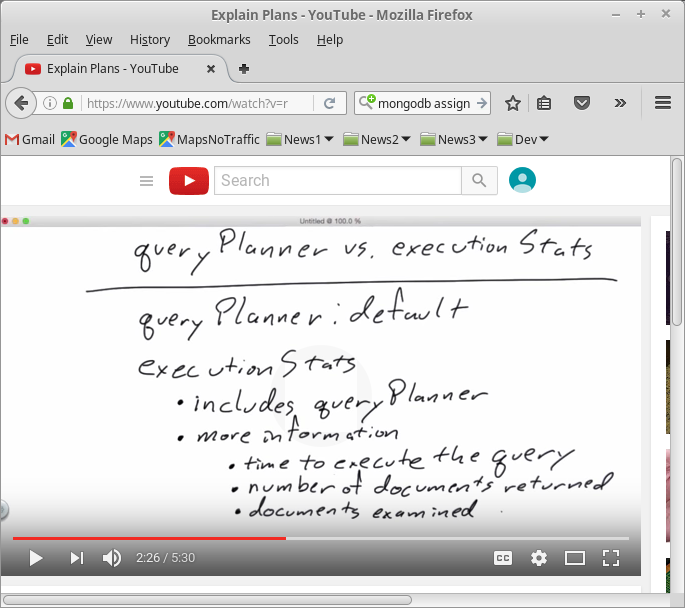 Explain Plans - YouTube - Mozilla Firefox
File Edit View History Bookmarks Tools Help
Explain Plans - YouTube
https://www.youtube.com/watch?v=r
mongodb assign
Gmail Google Maps MapsNoTraffic News1 News2 News3 Dev
Search
Untitled @ 100.0 %
queryPlanner vs. executionStats
queryPlanner: default
executionStats
• includes queryPlanner
• more information
• time to execute the query
• number of documents returned
• documents examined
2:26 / 5:30
CC